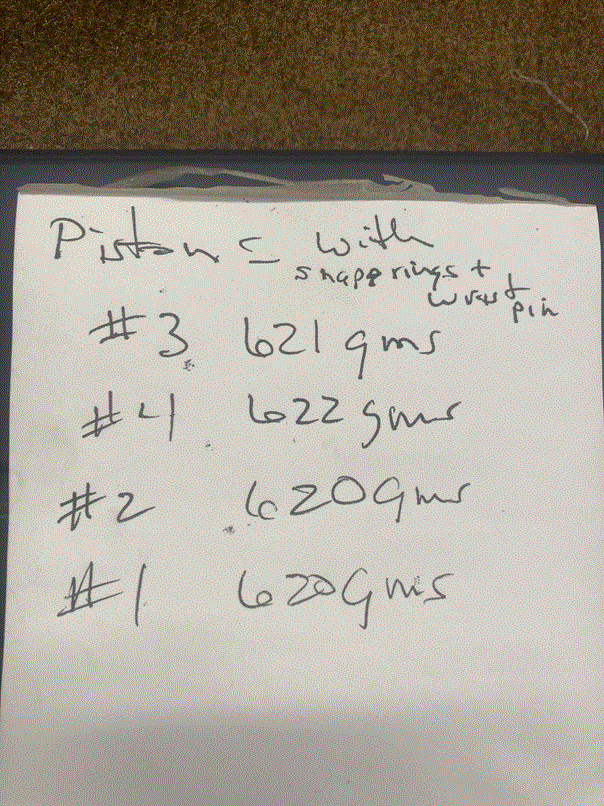 Pistons with
snapp rings +
wrist pin
#3 621 gms
#4 622 gms
#2 620 Gms
#1 620 Gms